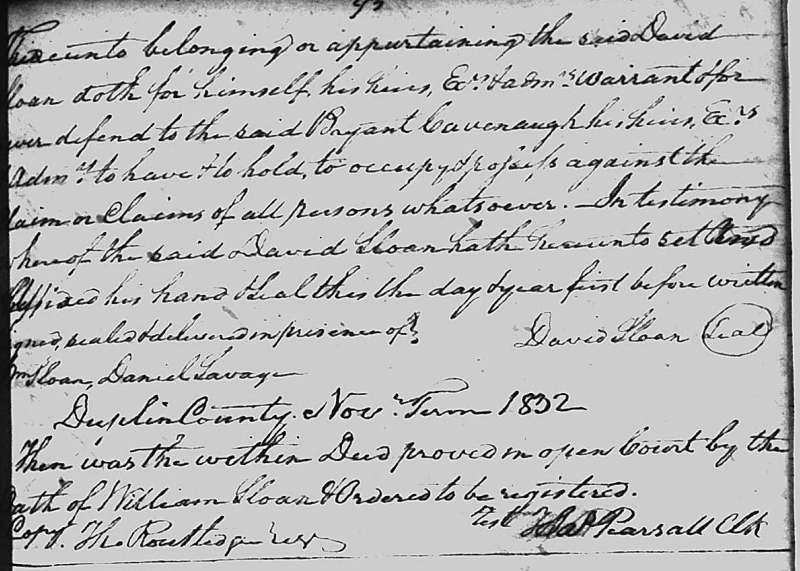 Thereunto belonging or appurtaining the said David
Sloan doth for himself, his heirs, Exrs & admrs warrant & for
ever defend to the said Bryant Cavenaugh his heirs, Exrs
Admrs to have & to hold, to occupy & possess against the
claim or Claims of all persons whatsoever. - In testimony
whereof the said David Sloan hath hereunto set and
affixed his hand & seal this the day & year first before written
signed, sealed & delivered in presence of
David Sloan Seal
Wm Sloan, Daniel Savage
Duplin County. Novr Term 1832
Then was the within Deed proved in open Court by the
Oath of William Sloan & Ordered to be registered.
Test Pearsall Clk
Copy. Tho Routledge